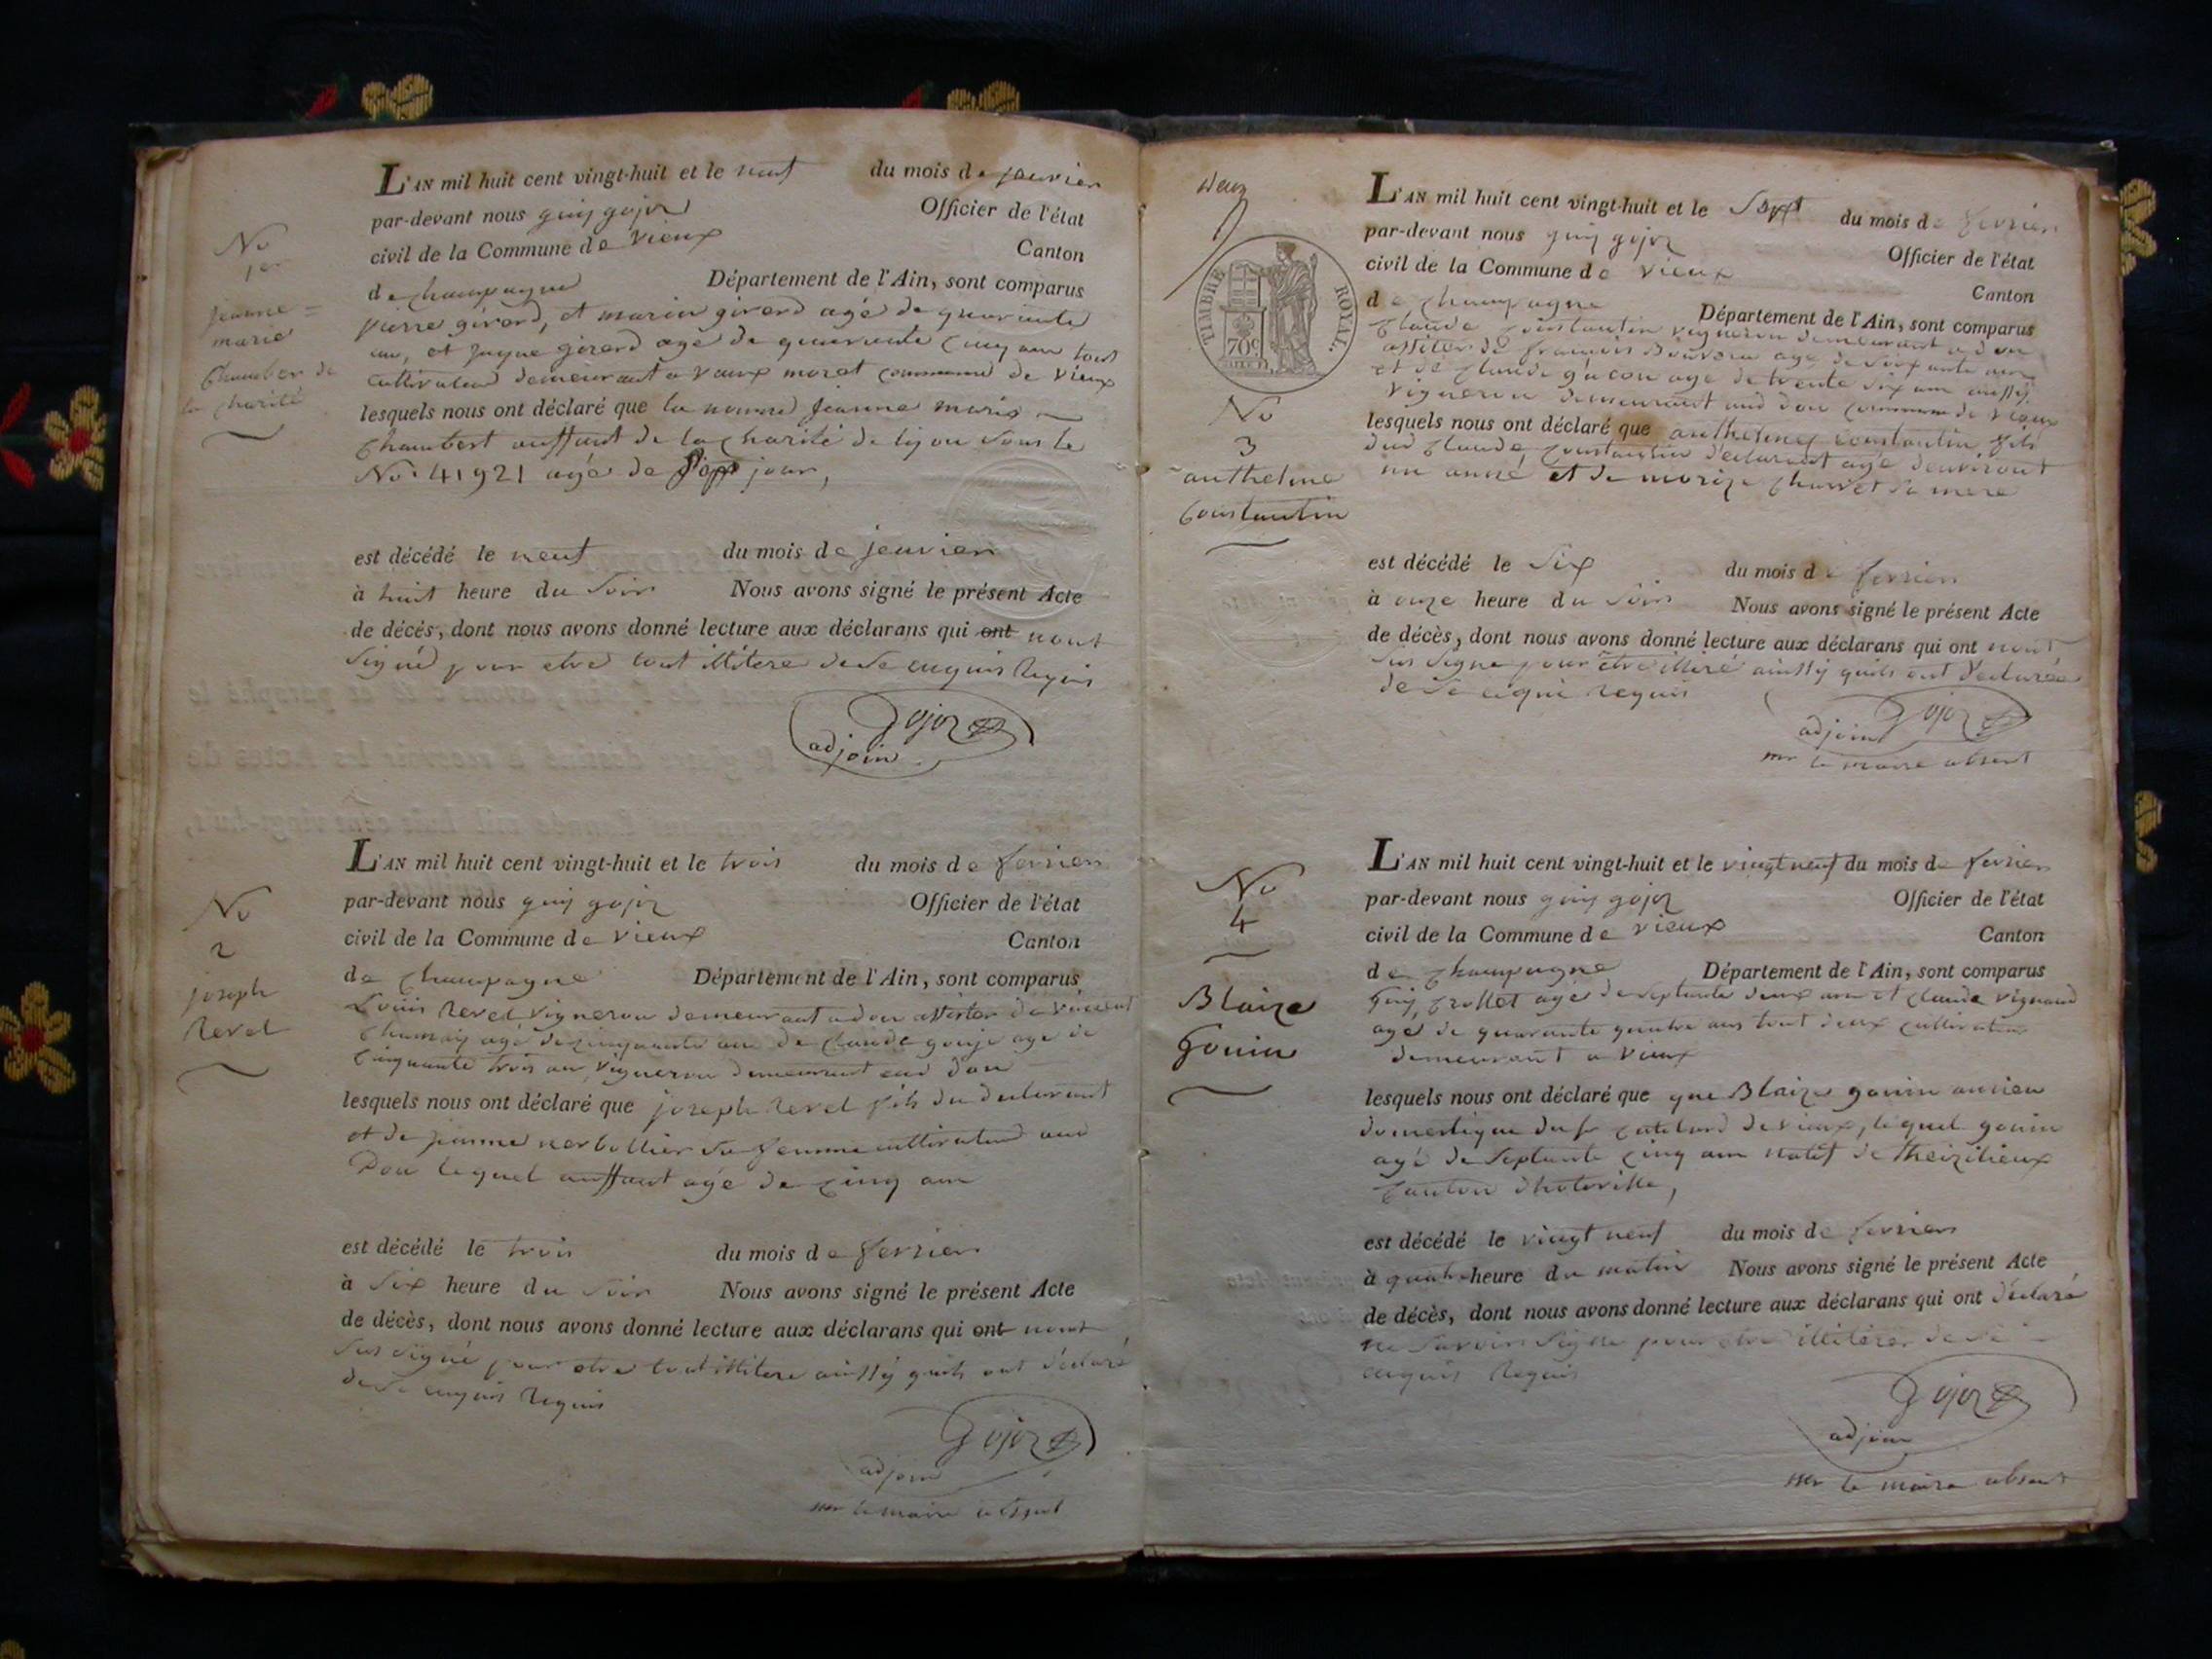 No
1er
jeanne =
marie
Chamber de
la charité
L'AN mil huit cent vingt-huit et le neuf du mois de janvier
par-devant nous guij gojoz Officier de l'état
civil de la Commune de Vieux Canton
de champagne Département de l'Ain, sont comparus
pierre girerd, et marin girerd agé de quarante
ans, et jaque girerd agé de quarente cinq ans tout
cultivateur demeurant a Vaux moret commune de Vieux
lesquels nous ont déclaré que la nommé jeanne marie
Chambert anffant de la charité de lijon sous le
No. 41921 agé de sept jour,
est décédé le neuf du mois de jenvier
à huit heure du soir Nous avons signé le présent Acte
de décés, dont nous avons donné lecture aux déclarans qui ont nont
signé pour etre tout illitere de ce enquis requis
Gojoz
adjoin
No
2
joseph
Revel
L'AN mil huit cent vingt-huit et le trois du mois de fevrier
par-devant nous guij gojoz Officier de l'état
civil de la Commune de Vieux Canton
de Champagne Département de l'Ain, sont comparus
Louis Revel vigneron demeurant a don assister de vincent
agé de cinquante ans de claude goujo age de
cinquante trois ans, vigneron demeurant aud don
lesquels nous ont déclaré que joseph Revel fils du declarant
et de jeanne sa femme cultivateur aud
Don lequel anffant agé de cinq ans
est décédé le trois du mois de fevrier
à six heure du soir Nous avons signé le présent Acte
de décès, dont nous avons donné lecture aux déclarans qui ont nont
sus signé pour etre tout illitere ainssÿ quils ont déclaré
de ce enquis requis
Gojoz
adjoin
mr le maire abssent
deux
TIMBRE ROYAL.
70c
No
3
anthelme
Constantin
L'AN mil huit cent vingt-huit et le Sept du mois de fevrier
par-devant nous guij gojoz Officier de l'état
civil de la Commune de Vieux Canton
de Champagne Département de l'Ain, sont comparus
Claude Constantin vigneron demeurant a don
assiter de françois agé de soixante ans
et de Claude gucon agé de trente six ans aussÿ
vigneron demeurant aud don commune de Vieux
lesquels nous ont déclaré que anthelme Constantin fils
dud Claude Constantin declarant agé denviront
un année et de morize sa mere
est décédé le six du mois de fevrier
à onze heure du soir Nous avons signé le présent Acte
de décès, dont nous avons donné lecture aux déclarans qui ont nont
sus signé pour être illiré ainssÿ quils ont declarée
de ce requis
Gojoz
adjoint
mr le maire absent
No
4
Blaize
Gouin
L'AN mil huit cent vingt-huit et le vingt neuf du mois de fevrier
par-devant nous guij gojoz Officier de l'état
civil de la Commune de Vieux Canton
de Champagne Département de l'Ain, sont comparus
Guij Crollet agé de septante deux ans et claude vignaud
agé de quarante quatre ans tout deux cultivateur
demeurant a Vieux
lesquels nous ont déclaré que que Blaize gouin ancien
domestique du sr catelard de vieux, lequel gouin
agé de septante cinq ans natif de theizilieux
Canton dhoteville,
est décédé le vingt neuf du mois de fevrier
à quatre heure du matin Nous avons signé le présent Acte
de décès, dont nous avons donné lecture aux déclarans qui ont déclaré
ne savoir signe pour etre illitéré de ce
enquis requis
Gojoz
adjoin
mr le maire absent